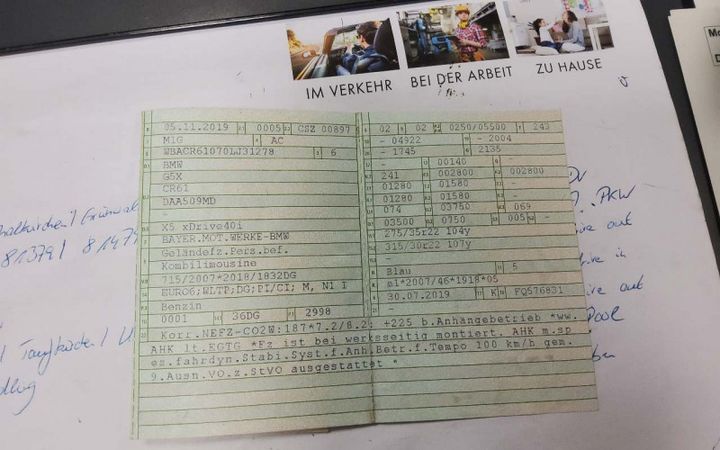 IM VERKEHR
BEI DER ARBEIT
ZU HAUSE
05.11.2019 0005 CSZ 00897
M1G AC
WBACR61070LJ31278 6
BMW
G5X
CR61
DAA509MD
-
X5 xDrive40i
BAYER.MOT.WERKE-BMW
Geländefz.Pers.bef.
Kombilimousine
715/2007*2018/1832DG
EURO6;WLTP;DG;PI/CI; M, N1 I
Benzin
0001 36DG 2998
02 02 0250/05500 243
- 04922 - 2004
- 1745 2135
- 00140 -
241 002800 002800
01280 01580 -
01280 01580 -
074 03750 069
03500 0750 005 -
275/35r22 104y
315/30r22 107y
-
Blau 5
e1*2007/46*1918*05
30.07.2019 K FQ576831
Korr.NEFZ-CO2W:187*7.2/8.2: +225 b.Anhängebetrieb *ww.
AHK lt.EGTG *Fz ist bei werksseitig montiert. AHK m.sp
ez.fahrdyn.Stabi.Syst.f.Anh.Betr.f.Tempo 100 km/h gem.
9.Ausn.VO.z.StVO ausgestattet *
81379 / 8147
PKW
Pool